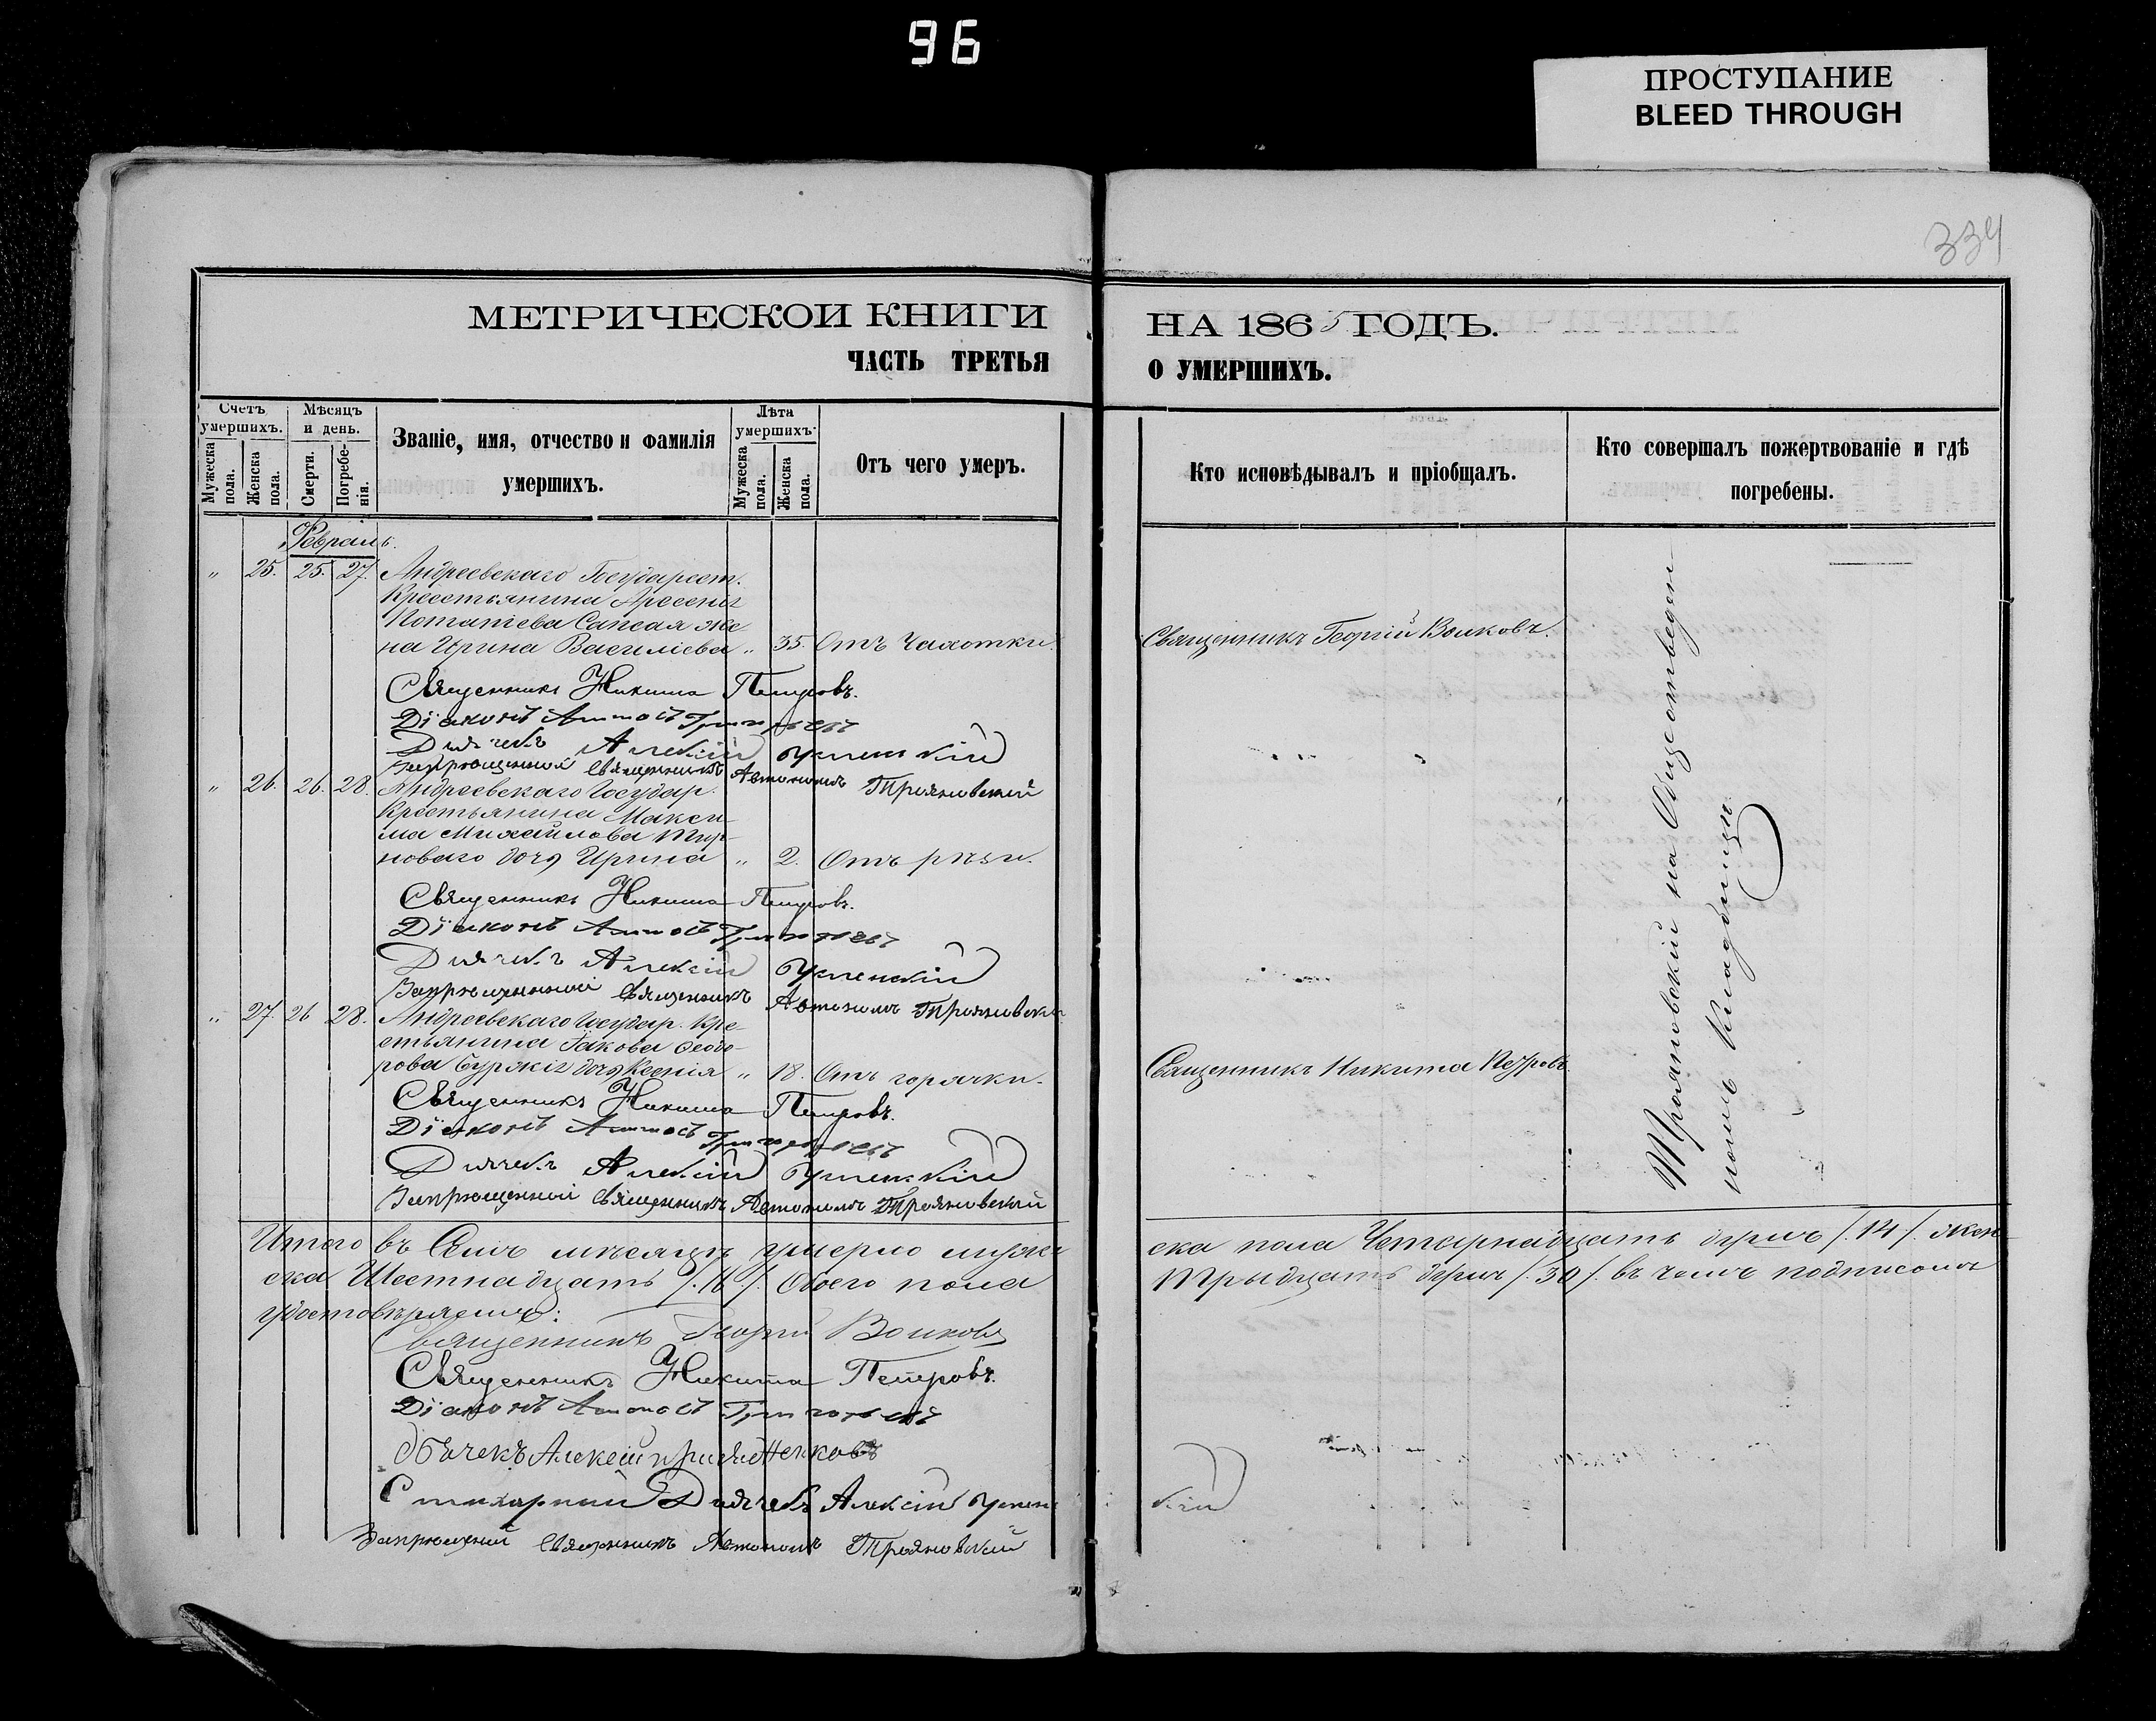 96
ПРОСТУПАНИЕ
BLEED THROUGH
334
МЕТРИЧЕСКОЙ КНИГИ НА 1865 ГОДЪ.
ЧАСТЬ ТРЕТЬЯ О УМЕРШИХЪ.
Счетъ умершихъ.
Мужеска пола.
Женска пола.
Мѣсяцъ и день.
Смерти.
Погребенія.
Званіе, имя, отчество и фамилія умершихъ.
Лѣта умершихъ.
Мужеска пола.
Женска пола.
Отъ чего умеръ.
Кто исповѣдывалъ и пріобщалъ.
Кто совершалъ пожертвованіе и гдѣ погребены.
Февраль.
" 25. 25. 27. Андреевскаго Государст.
Крестьянина Арсенія
Потапіева Сапсая же
на Ирина Василіева " 35. Отъ Чахотки. Священникъ Георгій Волковъ.
Священникъ Никита Петровъ.
Діаконъ Григорьевъ
Дьячекъ Алексій Успенскій
Запрещенный Священникъ Автономъ Трояновскій
" 26. 26. 28. Андреевскаго Государ.
Крестьянина Макси
ма Михайлова
новаго дочь Ирина " 2. Отъ рѣзи.
Священникъ Никита Петровъ.
Діаконъ Григорьевъ
Дьячекъ Алексій Успенскій
Запрещенный Священникъ Автономъ Трояновскій
" 27. 26 28. Андреевскаго Государ. Кре-
стьянина Іакова Ѳеодо-
рова дочь Ксенія " 18. Отъ горячки. Священникъ Никита Петровъ.
Священникъ Никита Петровъ.
Діаконъ Григорьевъ
Дьячекъ Алексій Успенскій
Запрещенный Священникъ Автономъ Трояновскій
Трояновскій на Общеотведен
номъ Кладбищѣ
Итого въ Семъ мѣсяцѣ умерло муже ска пола Четырнадцать душъ /.14/. Жен
ска Шестнадцать /.16/. Обоего пола Трыдцать душъ /.30/. въ чемъ подписомъ
удостовѣряемъ:
Священникъ Георгій Волковъ
Священникъ Никита Петровъ.
Діаконъ Григорьевъ
Дьячекъ Алексей
Стихарный Дьячекъ Алексій Успенс кій
Запрещенный Священникъ Автономъ Трояновскій